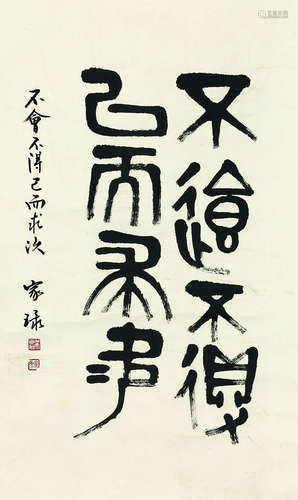 不會不得
已而求次
不會不得已而求次
家